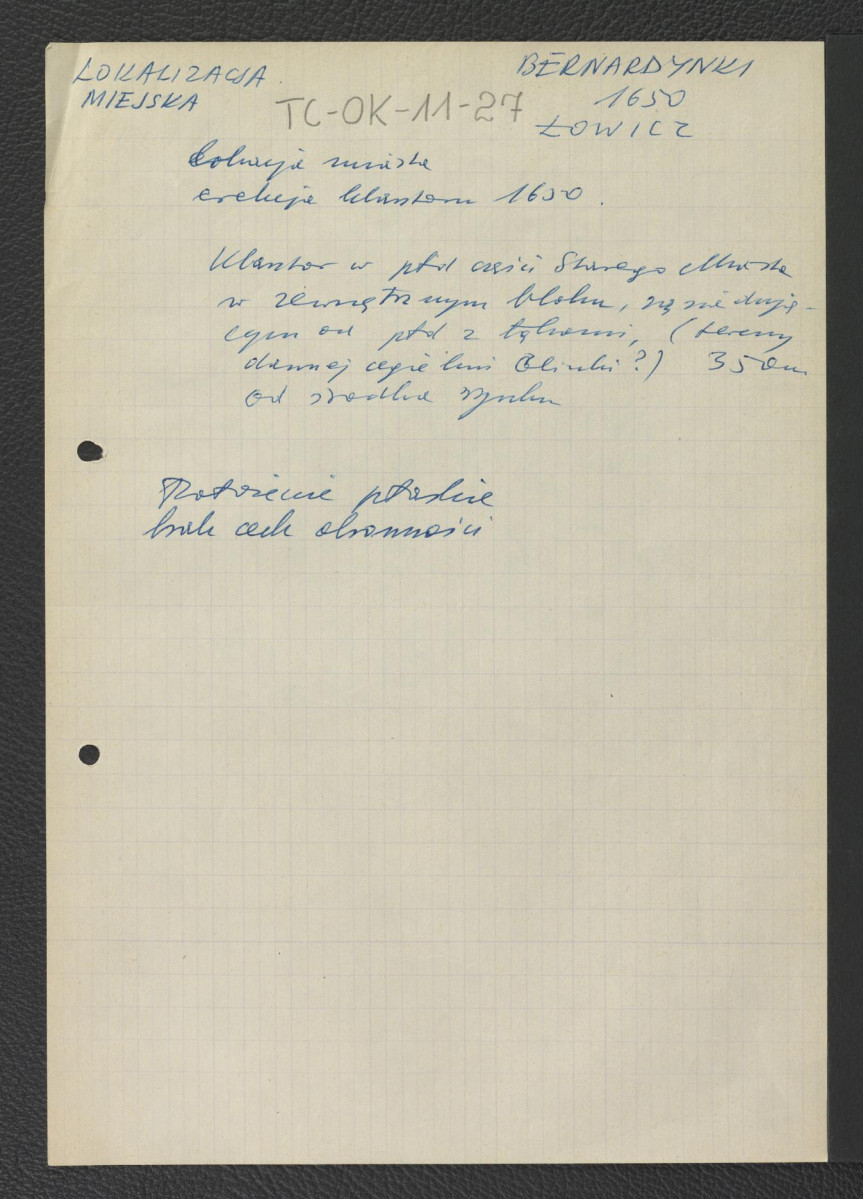 LOKALIZACJA
MIEJSKA
BERNARDYNKI
1650
ŁOWICZ
TC-OK-11-27
Lokacja miasta
erekcja klasztoru 1650.
Klasztor w płd części Starego Miasta
w zewnętrznym bloku, są siedują-
cym od płd z łąkami, (tereny
dawnej cegielni Olinki?) 350m
od środka rynku
Położenie płaskie
brak cech obronności